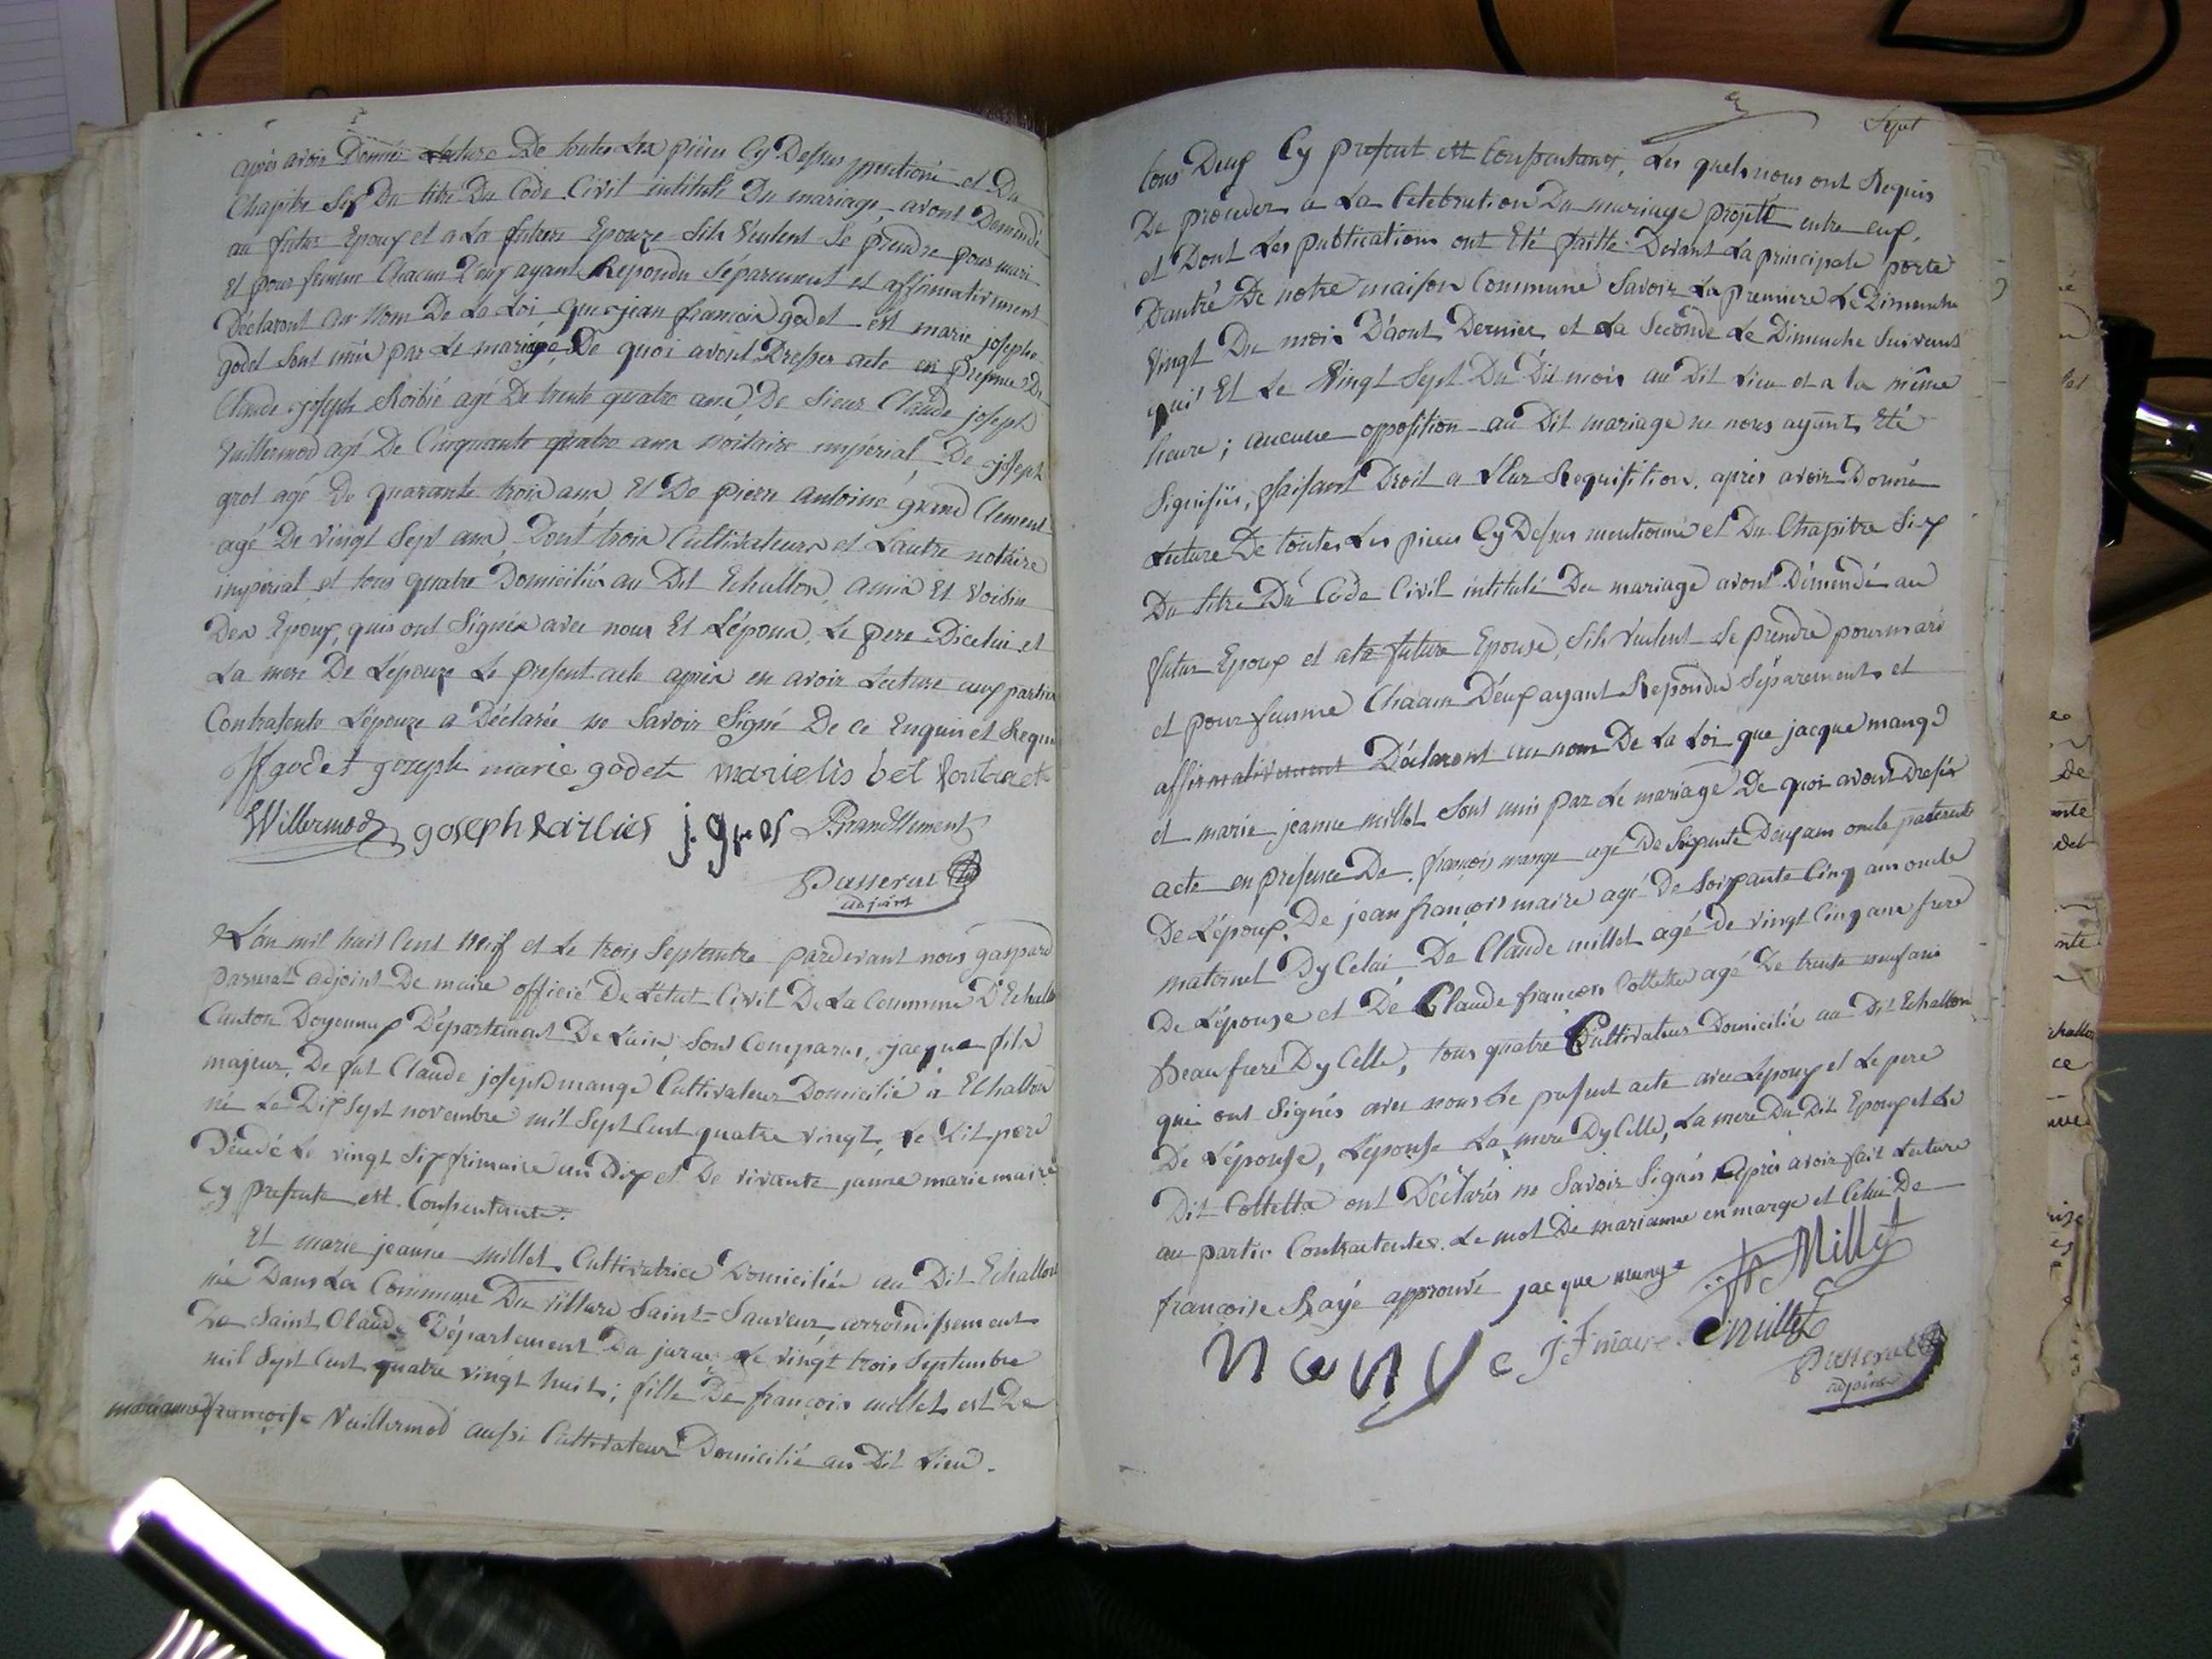 après avoir Donné Lecture De toutes Les pièces Cy Dessus mentioné et Du
Chapitre Six Du titre Du Code Civil intitulé Du mariage, avont Demandé
au futur Epoux et a La future Epouze sils Veulent Se prendre pour mari
Et pour femme Chacun D'eux ayant Repondu Séparement et affirmativement
Déclaront au nom De La Loi que jean françois godet est marie josephe
godet sont unis par Le mariage De quoi avont Dresser acte en presence De
Claude joseph Roibié agé De trente quatre ans, De Sieur Claude joseph
Vuillermod agé De Cinquante quatre ans notaire impérial, De joseph
grot agé De quarante trois ans, Et De pierre antoine grand Clement
agé De vingt Sept ans, Dont trois Cultivateurs et Lautre notaire
impérial et tous quatre Domiciliés au Dit Echallon, amis Et Voisin
Des Epoux, quis ont Signés avec nous Et L'époux, Le pere Dicelui et
La mere De L'épouze Le present acte après en avoir Lecture aux parties
Contratente L'épouze a Déclarée ne Savoir Signé De ce Enquis et Requis
Jf godet joseph marie godet marielis bel
Willermoz joseph j. gros Grandclement
Passerat
adjoint
L'an mil huit Cent neuf et Le trois Septembre pardevant nous gaspard
passerat adjoint De maire officié De L'état Civil De La Commune D'Echallon
Canton Doyonnax Département De Lain, Sont Comparus, jacque fils
majeur, De fut Claude joseph mange Cultivateur Domicilié à Echallon
né Le Dix Sept novembre mil Sept Cent quatre vingt, Le Dit pere
Décédé Le vingt Six frimaire an Dix et De vivante jeanne marie maire
Cy presente est Consentante.
Et marie jeanne millet Cultivatrice Domiciliée au Dit Echallon
née Dans La Commune Du Villard Saint-Sauveur, arrondissement
De Saint Claude Département Du jura, Le vingt trois Septembre
mil Sept Cent quatre vingt huit; fille De françois millet est De
marianne françoise Vuillermod aussi Cultivateur Domicilié au Dit Lieu.
Sept
tous Deux Cy present est Consentants, Les quels nous ont Requis
De proceder a La Celebration Du mariage projeté entre eux,
et Dont Les publications ont Eté faitte Devant La principale porte
Dantré De notre maison Commune Savoir La premiere Le Dimanche
Vingt Du mois D'aout Dernier et La Seconde Le Dimanche Suivant
qui Et Le Vingt Sept Du Dit mois au Dit Lieu et a la même
heure; aucune opposition au Dit mariage ne nous ayant Eté
Signifiés, faisant Droit a Leur Requisition, après avoir Donné
Lecture De toutes Les pieces Cy Dessus mentionné et Du Chapitre Six
Du titre Du Code Civil intitulé Du mariage avont Démendé au
futur Epoux et ala future Epouse, sils veulent Se prendre pour mari
et pour femme Chacun D'eux ayant Repondu Séparements et
affirmativement Déclaront au nom De La Loi que jacque mange
et marie jeanne millet Sont unis par Le mariage De quoi avont Dressés
acte en presence De françois mange agé De Soixante Deux ans oncle paternele
De L'époux, De jean françois maire agé De Soixante Cinq ans oncle
maternel Dy Celui, De Claude millet agé De vingt Cinq ans frere
De L'épouse et De Claude françois Collettaz agé De trente neuf ans
Beau frere Dy Celle, tous quatre Cultivateurs Domicilié au Dit Echallon
qui ont Signés avec nous Le present acte avec L'époux et Le pere
De L'épouse, L'épouse La mere Dy Celle, La mere Du Dit Epoux et Le
Dit Colletta ont Déclarés ne Savoir Signés Après avoir fait Lecture
au partie Contractentes. Le mot De marianne en marge et Celui De
françoise Rayé approuvé jacque mange Millet
mange JF maire C millet
Passerat
adjoint